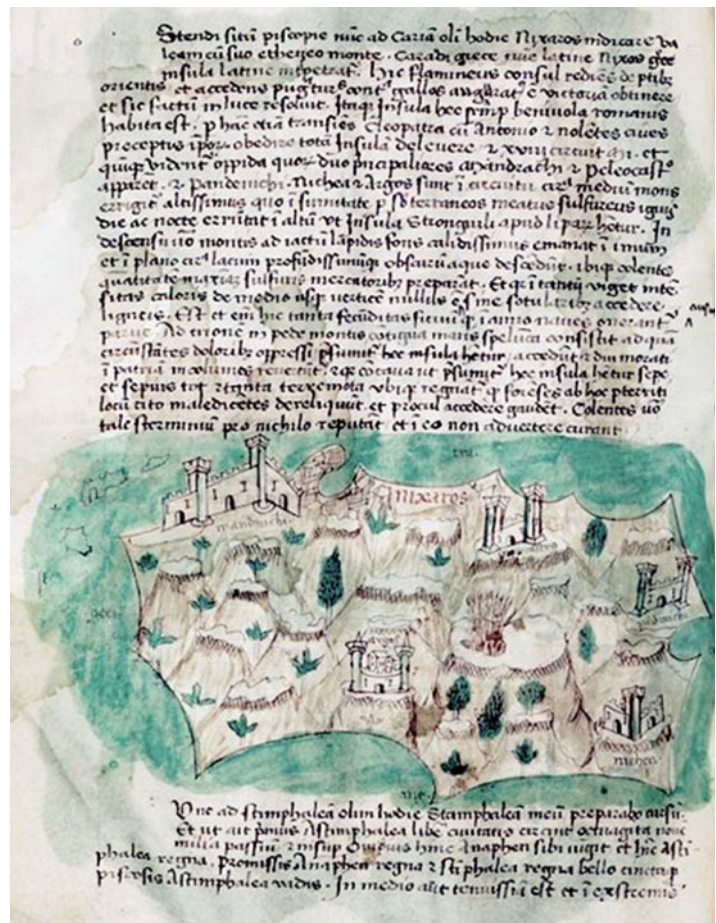 Ostendi sitū piscopie nūc ad Cariā olī hodie Nixaros indicare va
leam cū suo ethneo monte. Caradi grece nūc latine Nixos grece
insula latine
orientis et accedens cōtˢ gallos ē victoriā obtinere
et sic factū in luce resolvit. Itaqꝫ Insula hec semp benivola romanis
habita est. p hāc etiā transiēs Cleopatra cū Antonio & nolētes cives
preceptis obedire totā Insulā delevere & xviii circuit m. et
quinqꝫ vident oppida quoꝝ duo prīcipaliores Mandrachi & Peleocastˢ
apparēt. & Pandenichi. Nichea & Argos sunt ī circuitu circˢ mediū mons
erigit altissimus quo ī sumitate p subterraneos meatus sulfureus ignis
die ac nocte eructat ī altū ut Insula Stronguli apud lipaꝝ hētur. In
descensu vō montis ad iactū lapidis fons calidissimus emanat ī imum
et ī plano circˢ lacum profūdissimūqꝫ obscurū aque descēdūt. ibiqꝫ colentes
quātitatē maxīaꝫ sulfuris mercatoribꝫ preparāt. Et qꝫ tantū viget intē
sitas caloris de medio usqꝫ verticē nullus ē sine sotularibꝫ accedere
ligneis. Est et enī hic tanta fecūditas ficuū qꝫ ī anno naves onerant
parve. Ad trione in pede montis cōtigua maris spelūca consistit ad quā
circūstātes doloribꝫ oppressi hec insula hētur accedūt & diu morati
ī patriā incolumes revertūt. hec insula hētur sepe
et sepius tot & tanta terremota ubiqꝫ regnāt qꝫ forēses ab hoc pterriti
locū cito maledicētes derelīquūt et procul accedere gaudēt. Colentes vō
tale sterminiū pro nichilo reputāt et ī eo non advertere curant
Nixaros
mandrachi
nichea
Unc ad stimphaleā olim hodie Stamphaleā meū preparabo cursū
Et ut ait Astimphalea libē civitatis circuit octuagīta nove
milia passuū & insup Ovidius hinc Anaphen sibi iūgit et hīc Asti
phalea regna. promissis Anaphen regna & Stīphalea regna bello cinctaqꝫ
piscosis Astimphalea vadis. In medio aūt tenuissīa est et ī exstremis